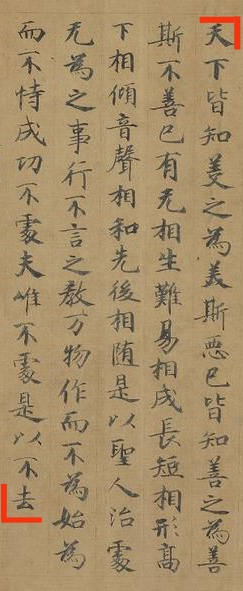 天下皆知美之為美斯惡已皆知善之為善
斯不善已有无相生難易相成長短相形高
下相傾音聲相和先後相随是以聖人治處
无為之事行不言之教万物作而不為始為
而不恃成功不處夫唯不處是以不去